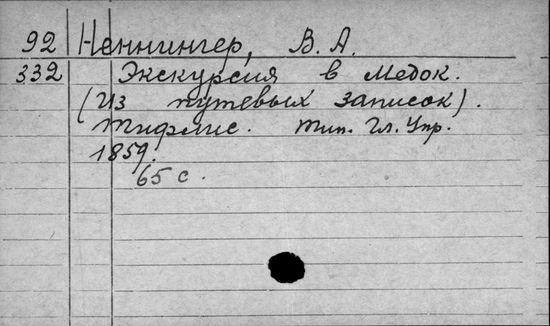 92 Неннингер, В. А.
332 Экскурсия в Медок.
(Из путевых записок).
Тифлис. Тип. Гл. Упр.
1859.
65 с.